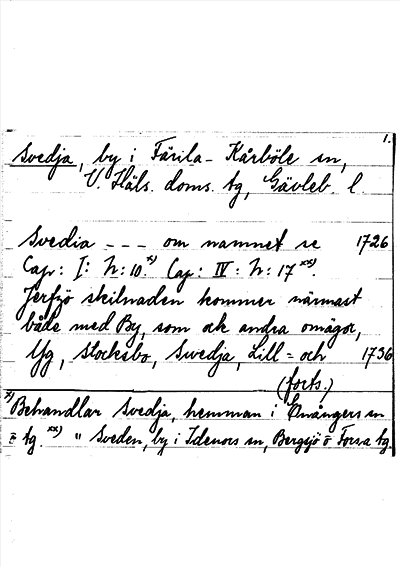 1.
Svedja, by i Färila-Kårböle sn,
V. Häls. doms. tg, Gävleb. l
Svedia --- om namnet se 1726
Cap: I: N:10.x) Cap: IV: N:17xx).
Jerfsjö skilnaden kommer närmast
både med By, som ock andra omägor,
Yg, Stocksbo, Swedja, Lill= och 1736
(forts.)
x) Behandlar Svedja, hemman i Enångers sn
o tg. xx) " Sveden, by i Idenors sn, Bergsjö o Forsa tg.